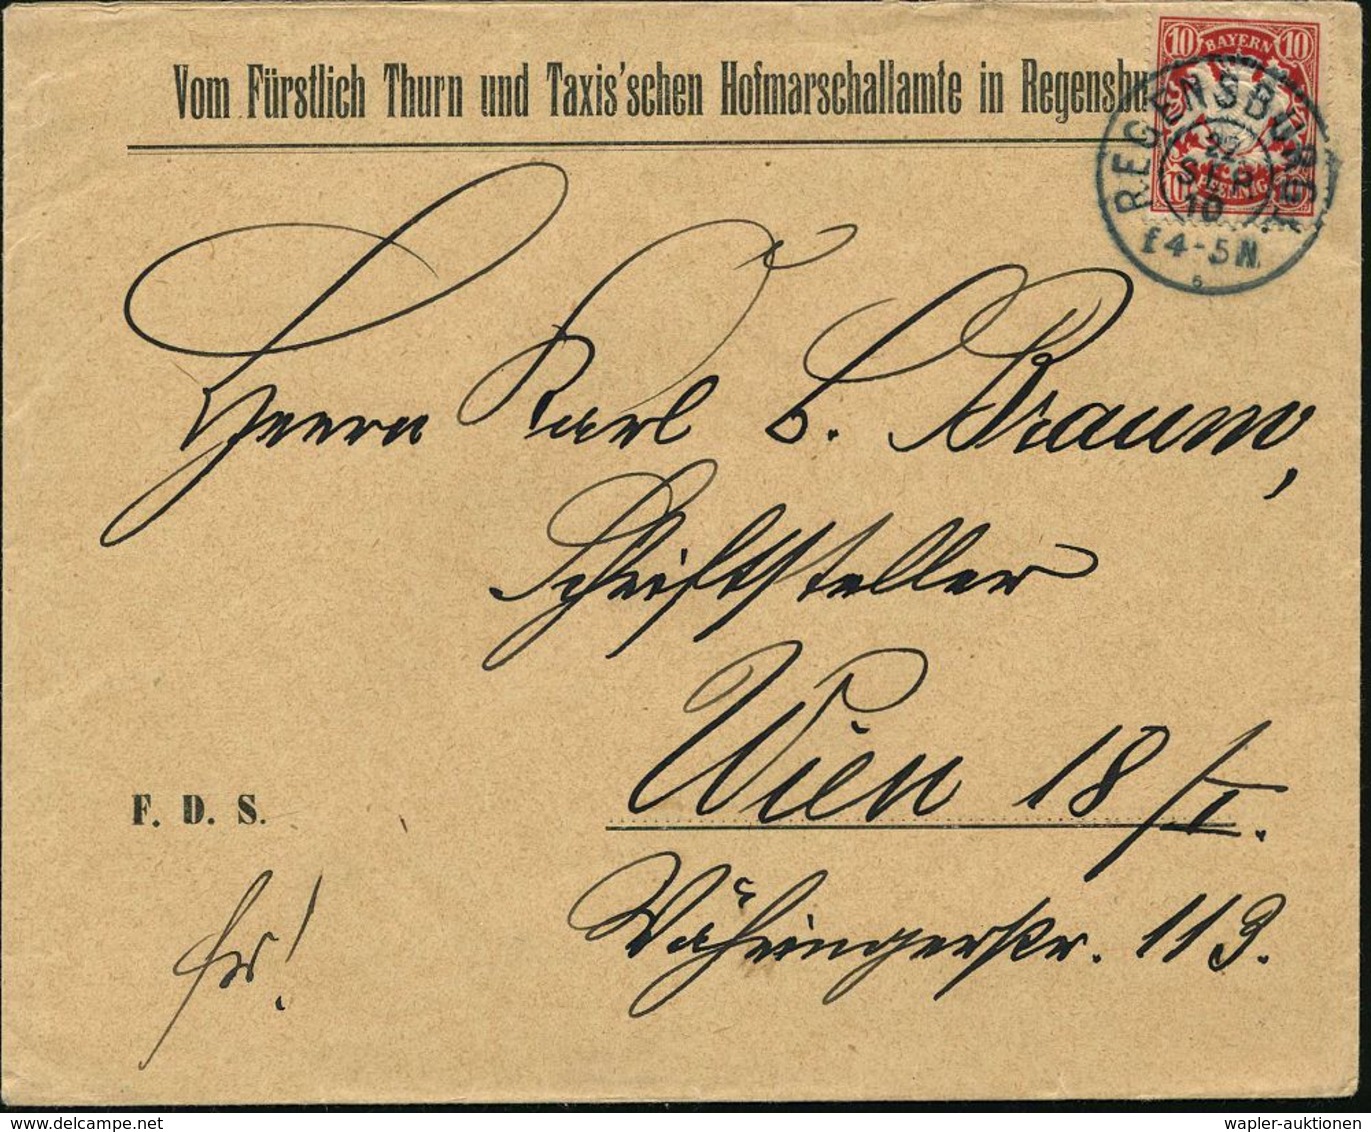 Vom Fürstlich Thurn und Taxis'schen Hofmarschallamte in Regensbu
10 BAYERN 10
10 PFENNIG
REGENSBURG
22
SEP
10
f 4-5 N.
6
Herrn Karl b. C. Braum,
Schriftsteller
Wien 18/I.
F. D. S.
Währingerstr. 113.
fr!
wapler-auktionen